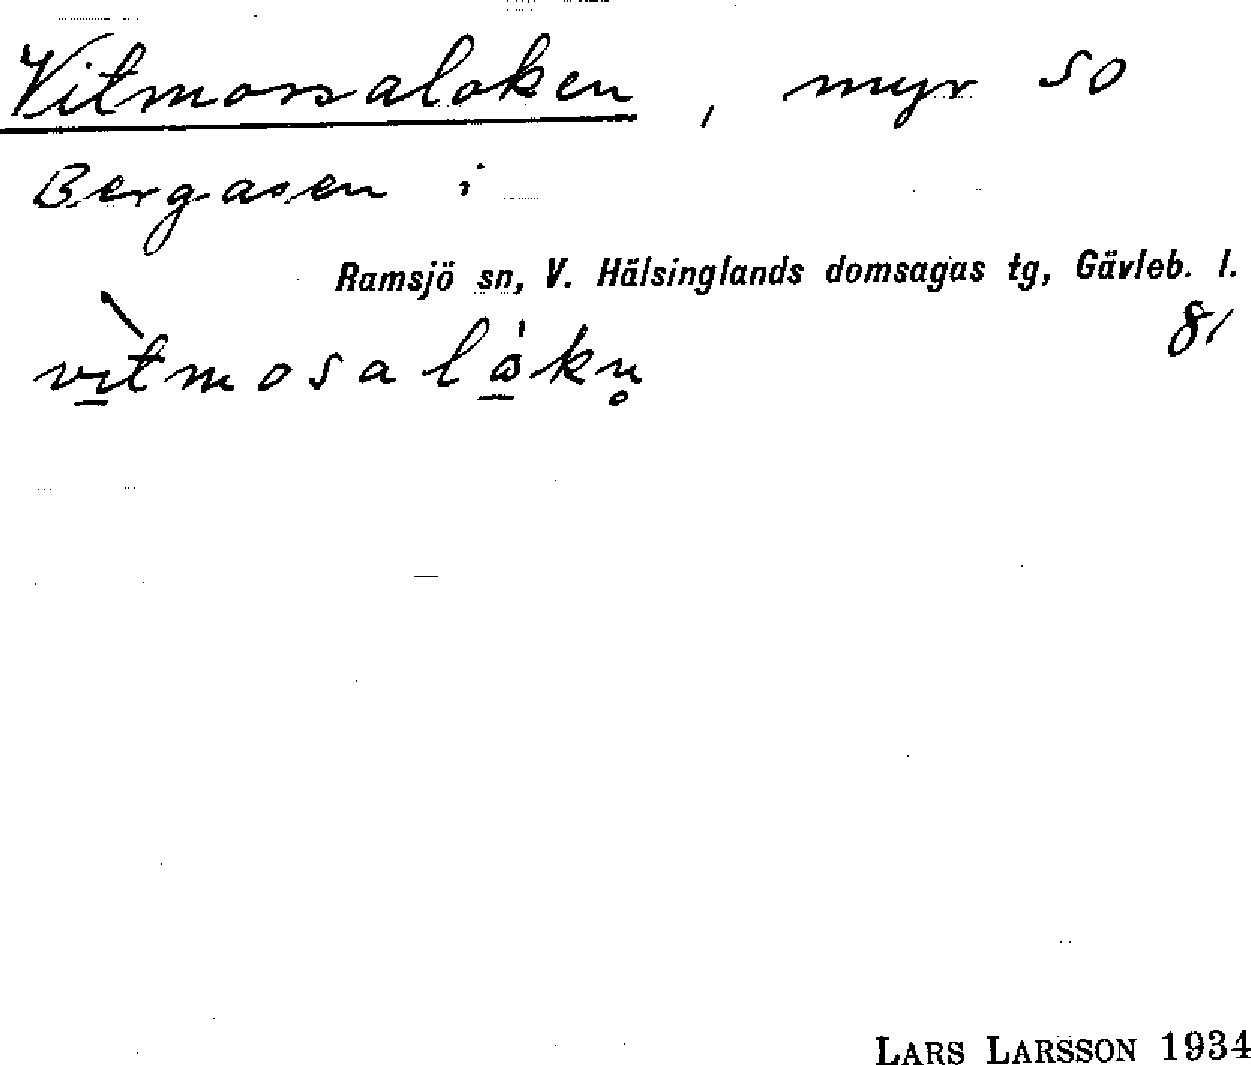 Vitmossaloken, myr SO
Bergasen i
Ramsjö sn, V. Hälsinglands domsagas tg, Gävleb. l.
81
vìtmosalòkn̥
LARS LARSSON 1934